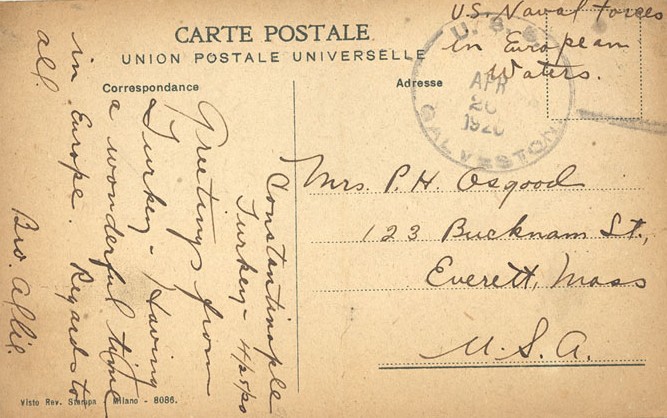 CARTE POSTALE
UNION POSTALE UNIVERSELLE
Correspondance
Adresse
U.S. Naval Forces
in European
Waters.
U. S. S.
APR
20
1920
GALVESTON
Constantinople
Turkey - 4/25/20
Greetings from
Turkey - Having
a wonderful time
in Europe. Regards to
all.
Bro. Allie.
Mrs. P. H. Osgood
123 Bucknam St.,
Everett, Mass
U.S.A.
Visto Rev. Stampa Milano - 8086.